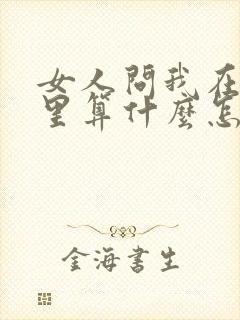 女人問我在
里算什麼怎
金海書生